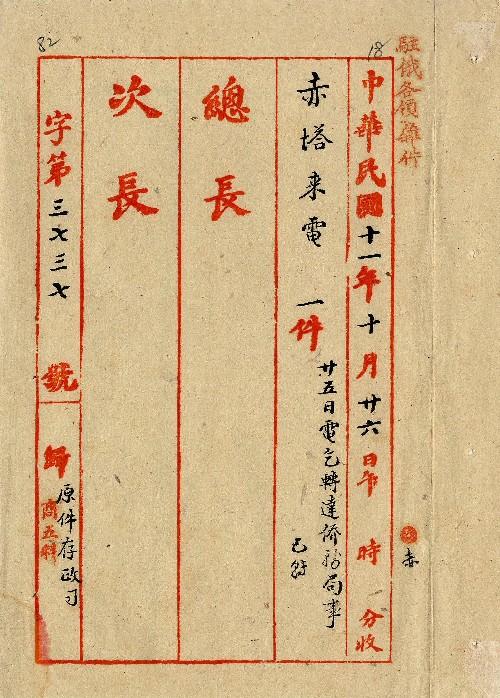 駐俄各領館件
18
82
中華民國十一年十月廿六日午 時 分收
赤塔来電 一件
廿五日電乞轉達僑務局事
已符
總長
次長
字第三七三七號
歸
原件存政司
商五科
赤